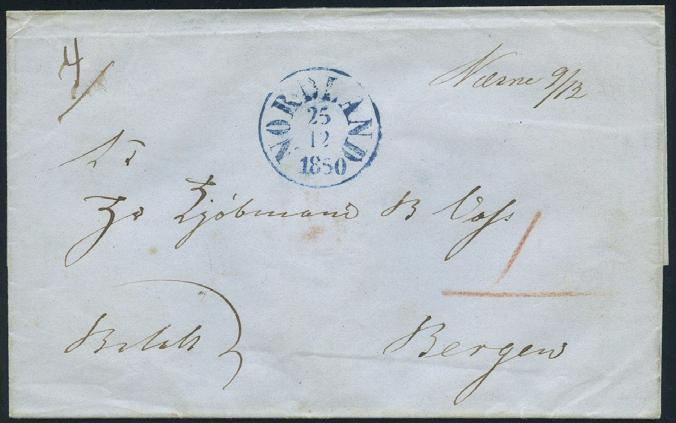 4/
Værne 9/12
NORDLAND
25
12
1850
S. T.
Hr Kjöbmand B Voss
Betalt
Bergen